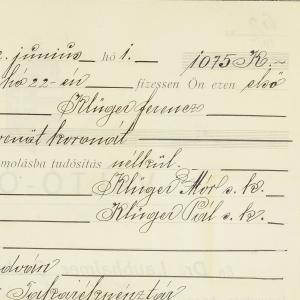 június hó 1. 1075 K.-
hó 22-én fizessen Ön ezen első
Klüger ferenc
koronát
molásba tudósítás nélkül.
Klüger Mór s. k.
Klüger Pál s. k.
Takarékpénztár